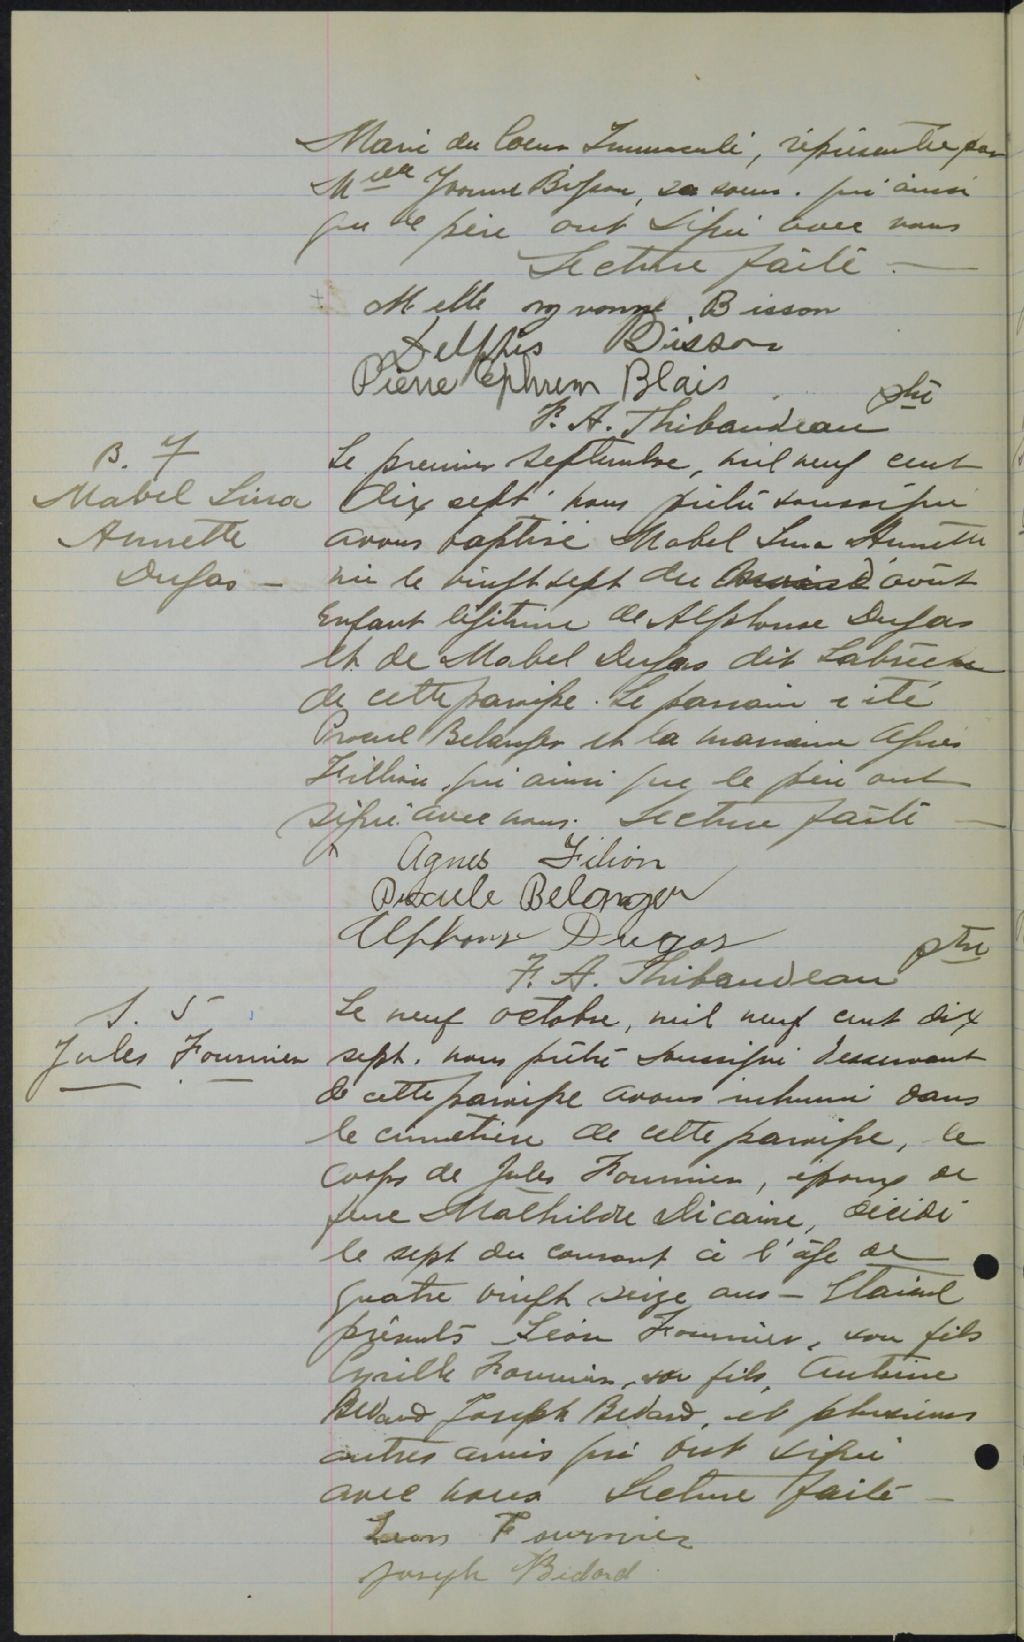 Marie du Coeur Immaculé, représentée par
Melle Yvonne Bisson, sa soeur. qui ainsi
que le père ont signé avec nous
Lecture faite —
Melle yvonne Bisson
Delphis Bisson
Pierre Ephrem Blais
F. A. Thibaudeau ptre
B. 7
Mabel Lina
Annette
Dugas —
Le premier septembre, mil neuf cent
dix sept nous prêtre soussigné
avons baptisé Mabel Lina Annette
née le vingt sept du d'août
Enfant légitime de Alphonse Dugas
et de Mabel Dugas dit Labrèche
de cette paroisse. Le parrain a été
Procul Belanger et la marraine Agnès
Fillion qui ainsi que le père ont
signé avec nous. Lecture faite —
Agnes Filion
Procule Belanger
Alphonse Dugas
F. A. Thibaudeau ptre
S. 5
Jules Fournier
Le neuf octobre, mil neuf cent dix
sept. nous prêtre soussigné desservant
de cette paroisse avons inhumé dans
le cimetière de cette paroisse, le
corps de Jules Fournier, époux de
feue Mathilde Dicaire, décédé
le sept du courant à l'âge de
quatre vingt seize ans — Etaient
présents Léon Fournier, son fils
Cyrille Fournier, son fils, Antoine
Bedard Joseph Bedard, et plusieurs
autres amis qui ont signé
avec nous Lecture faite —
Leon Fournier
Joseph Bedard